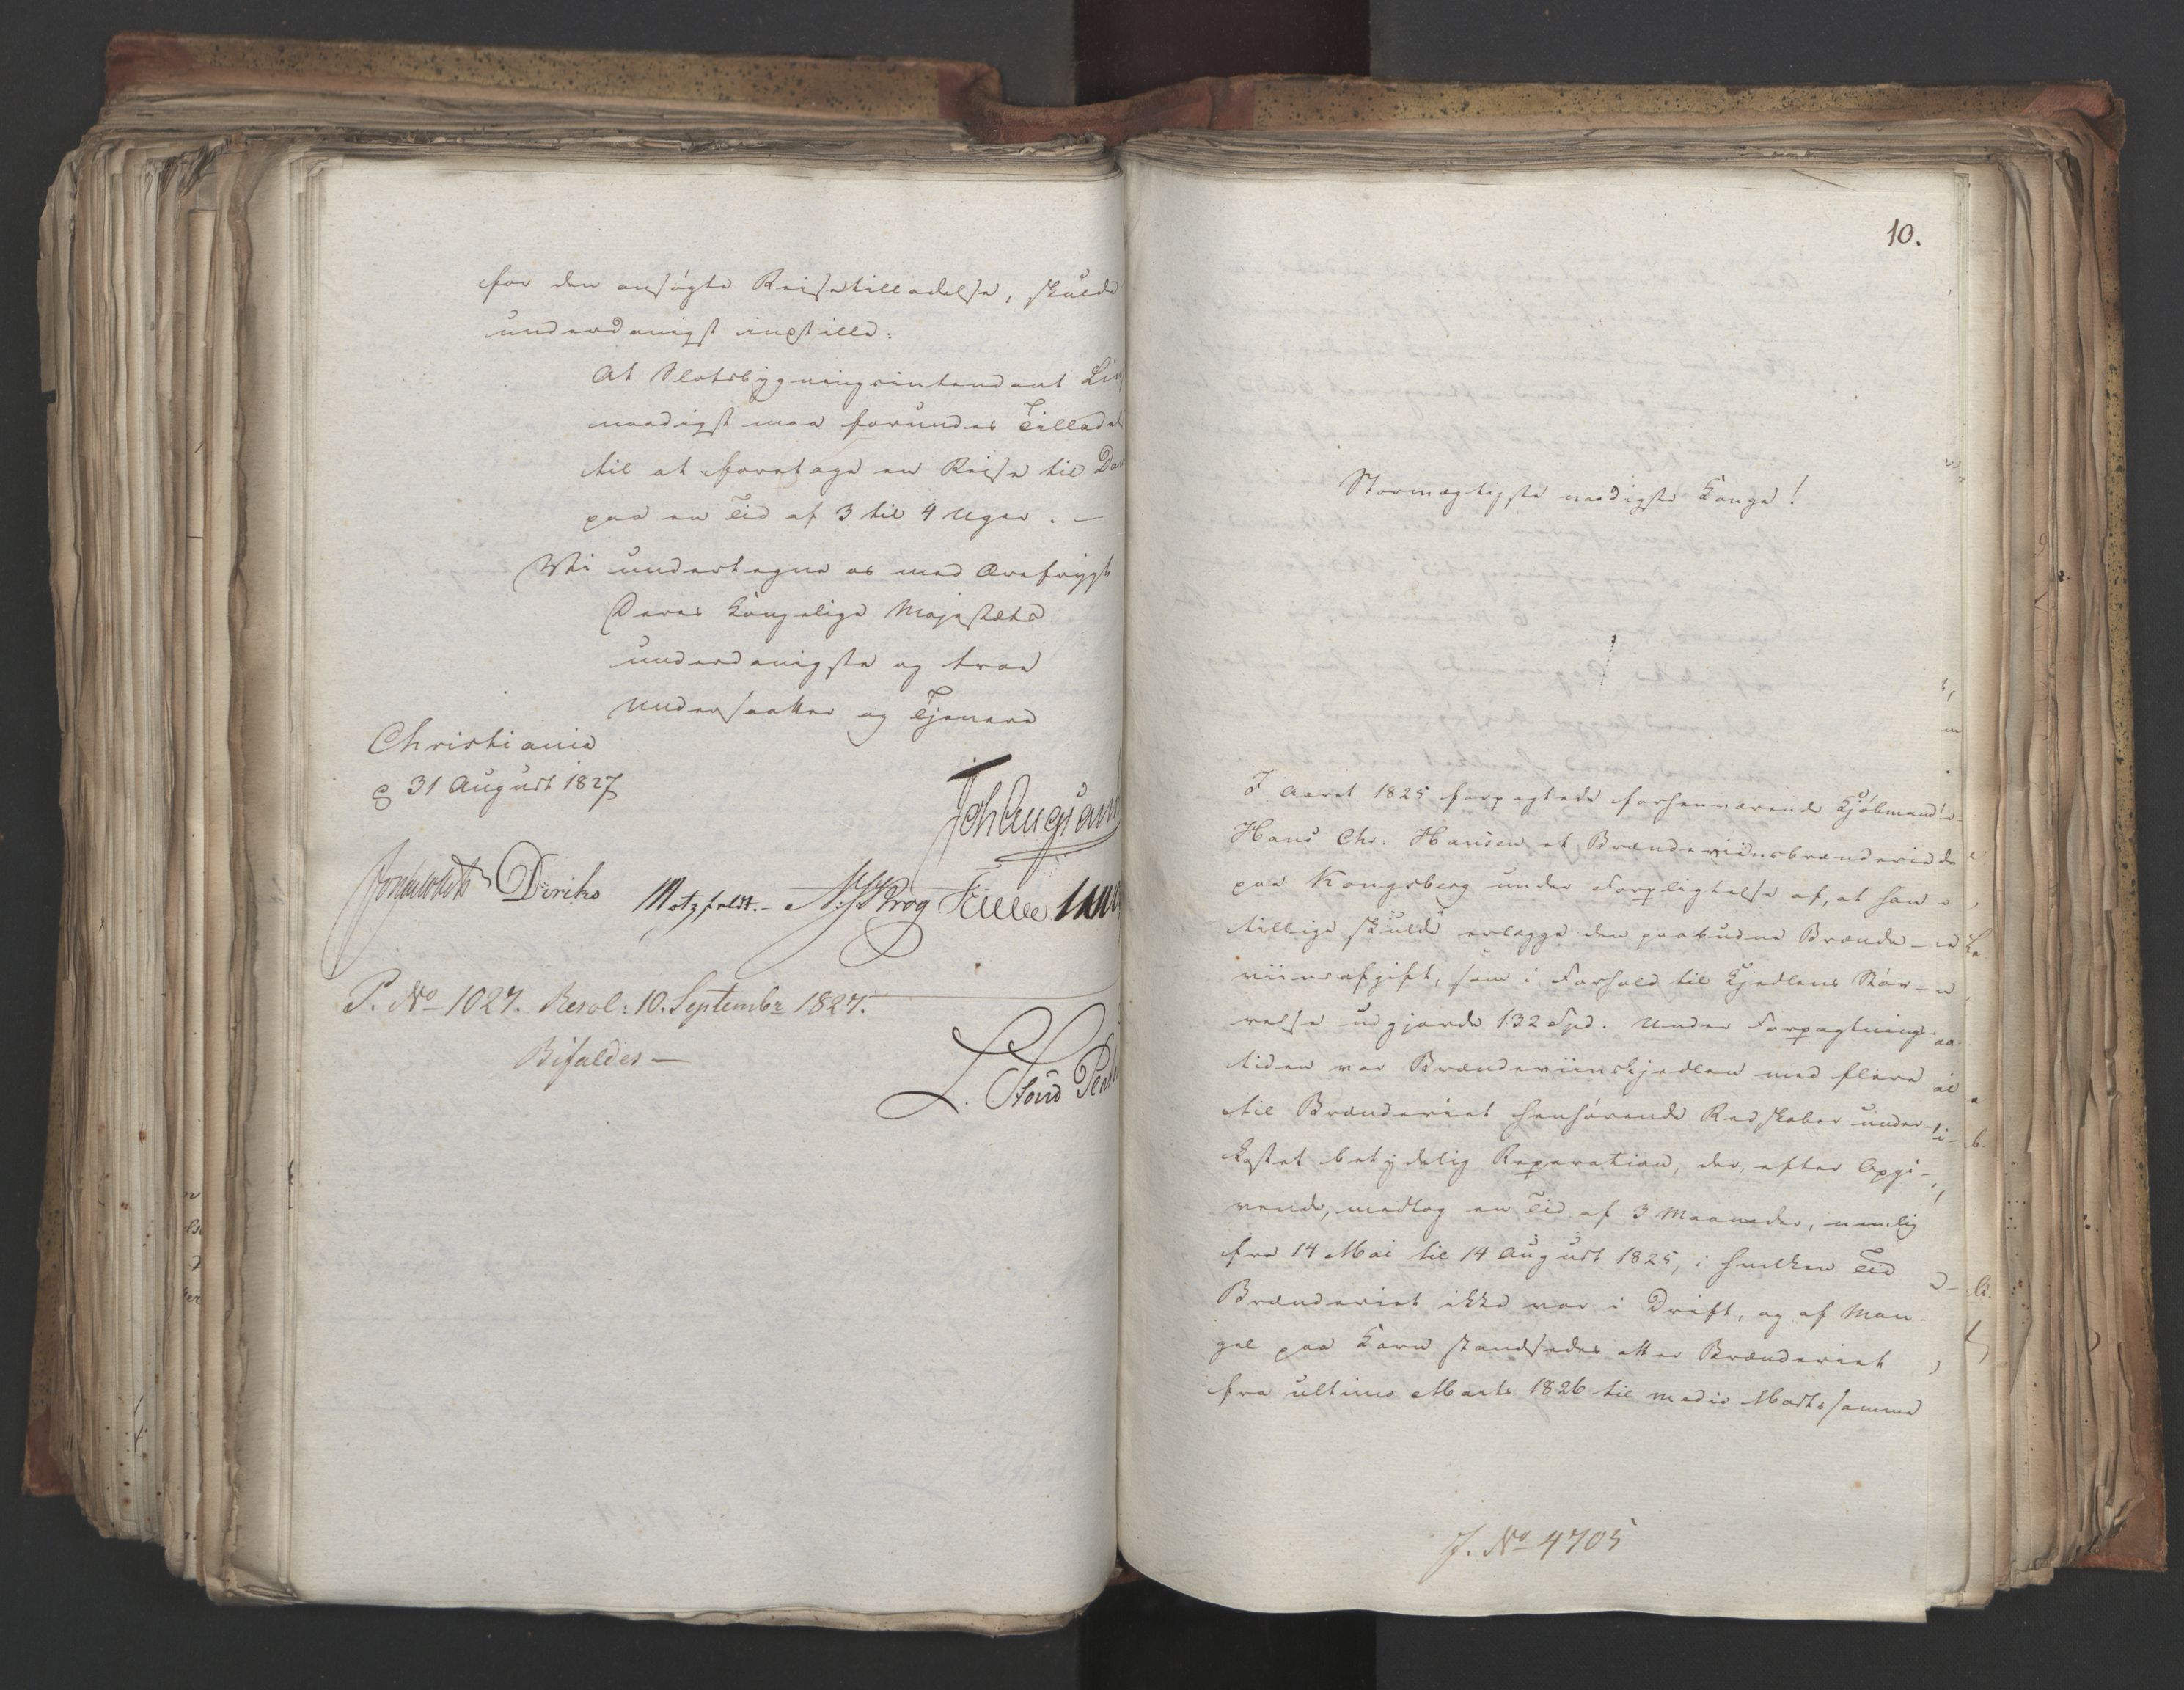 for den ansøgte Reisetilladelse, skulde
underdanigst indstille:
At Slotsbygningsintendant
naadigst maa forundes Tillad
til at foretage en Reise til Da
paa en Tid af 3 til 4 Uger. —
Vi undertegne os med Ærefrygt
Deres Kongelige Majestæts
underdanigste og troe
Undersaatter og Tjenere
Christiania
d 31 August 1827
Diriks Motzfeldt. Krog
P. No 1027. Resol: 10. Septembr 1827.
Bifaldes —
L.
10.
Stormægtigste naadigste Konge!
I Aaret 1825 forpagtede forhenværende Kjøbmand
Hans Chr. Hansen et Brændeviinsbrænderie
paa Kongsberg under Forpligtelse af, at han
tillige skulde erlægge den paabudne Brænde-
viinsafgift, som i Forhold til Kjedlens Stør-
relse udgjorde 132 Spd. Under Forpagtnings-
tiden var Brændeviinskjedlen med flere
til Brænderiet henhørende Redskaber under-
kastet betydelig Reparation, der, efter Opgi-
vende, medtog en Tid af 3 Maaneder, nemlig
fra 14 Mai til 14 August 1825, i hvilken Tid
Brænderiet ikke var i Drift, og af Man-
gel paa Korn standsedes atter Brænderiet
fra ultimo Marts 1826 til medio samme
J. No 4705